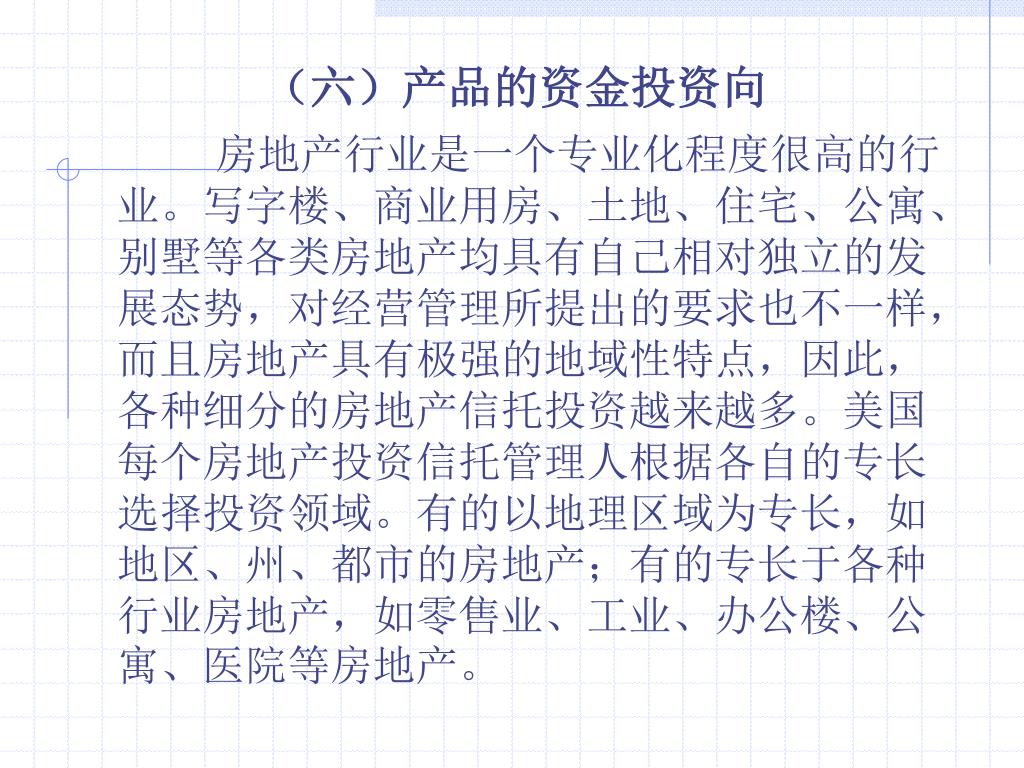 （六）产品的资金投资向
房地产行业是一个专业化程度很高的行
业。写字楼、商业用房、土地、住宅、公寓、
别墅等各类房地产均具有自己相对独立的发
展态势，对经营管理所提出的要求也不一样，
而且房地产具有极强的地域性特点，因此，
各种细分的房地产信托投资越来越多。美国
每个房地产投资信托管理人根据各自的专长
选择投资领域。有的以地理区域为专长，如
地区、州、都市的房地产；有的专长于各种
行业房地产，如零售业、工业、办公楼、公
寓、医院等房地产。